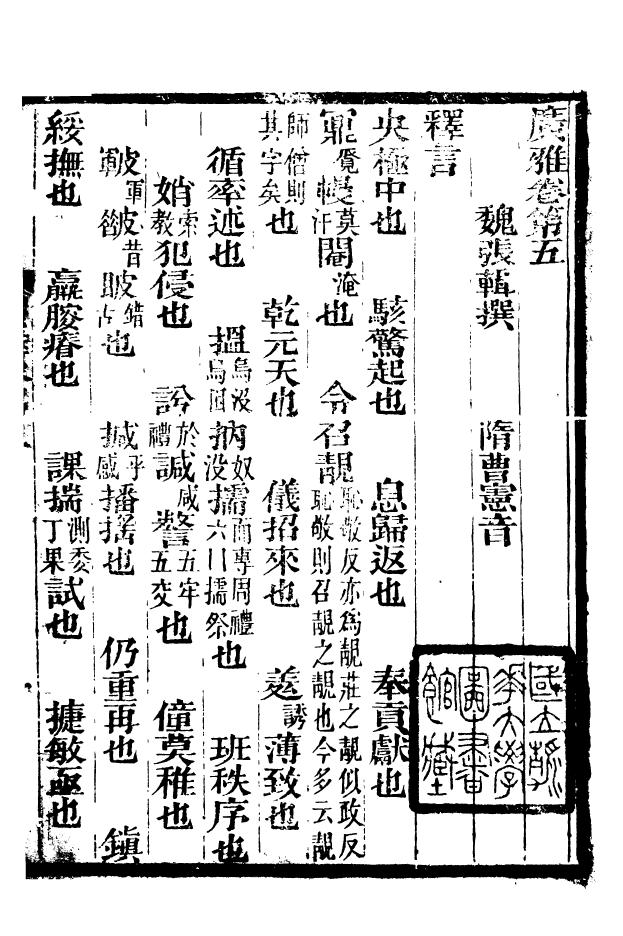 廣雅卷第五
魏張輯撰 隋曹憲音
釋言
央極中也 駭驚起也 息歸返也 奉貢獻也
覺幔莫汗閹淹也 令召靚恥敬反亦為靚莊之靚似政反恥敬則召靚之靚也今多云靚
師僧則其字矣也 乾元天也 儀招來也 誘薄致也
循率述也 搵烏沒烏困抐奴沒擩而專周禮六曰擩祭也 班秩序也
娋索教犯侵也 訡於禮諴咸警五牢五交也 僮莫稚也
皸軍皵昔皵錯也 撼乎感播搖也 仍重再也 鎮
綏撫也 羸朘瘠也 課揣測委丁果試也 捷敏亟也
國立清華大學圖書館藏